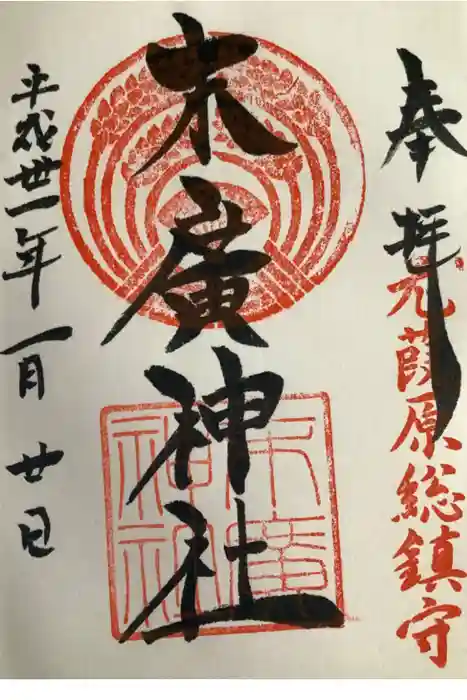 奉拝
元葭原総鎮守
末廣神社
平成卅一年一月廿日
末廣神社